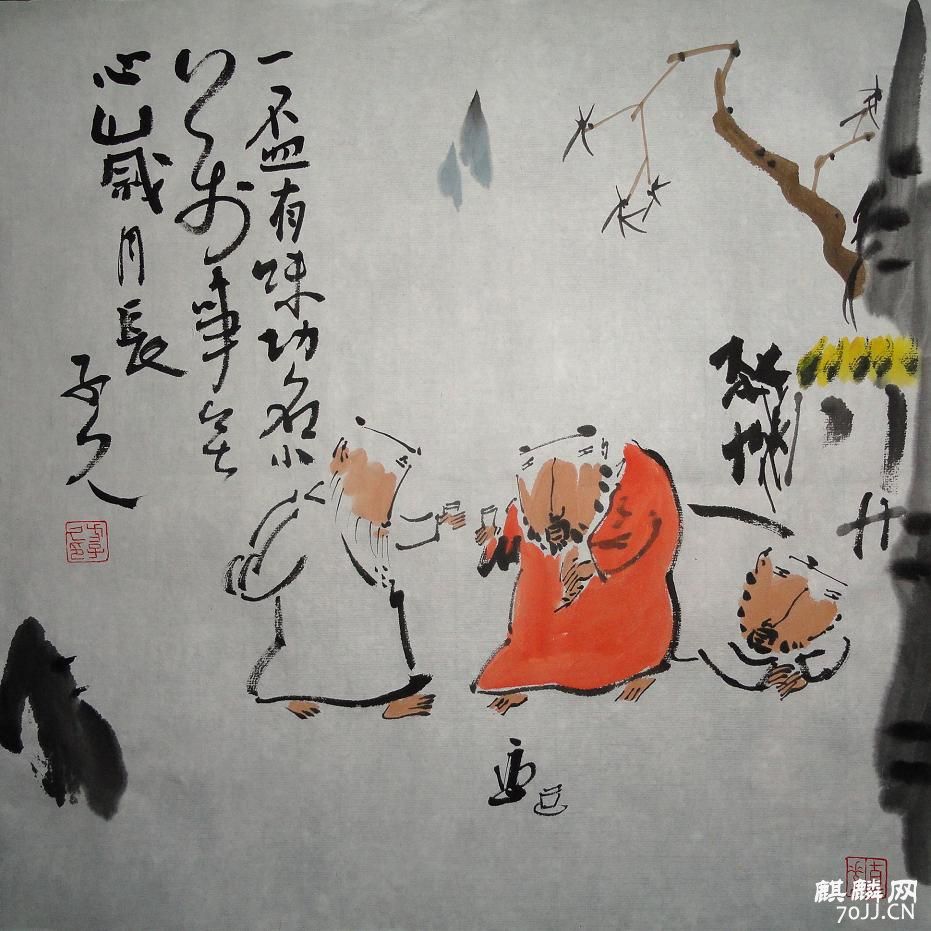 一盃有味功名小
万事无
心歲月長
子久
麒麟网
70JJ.CN